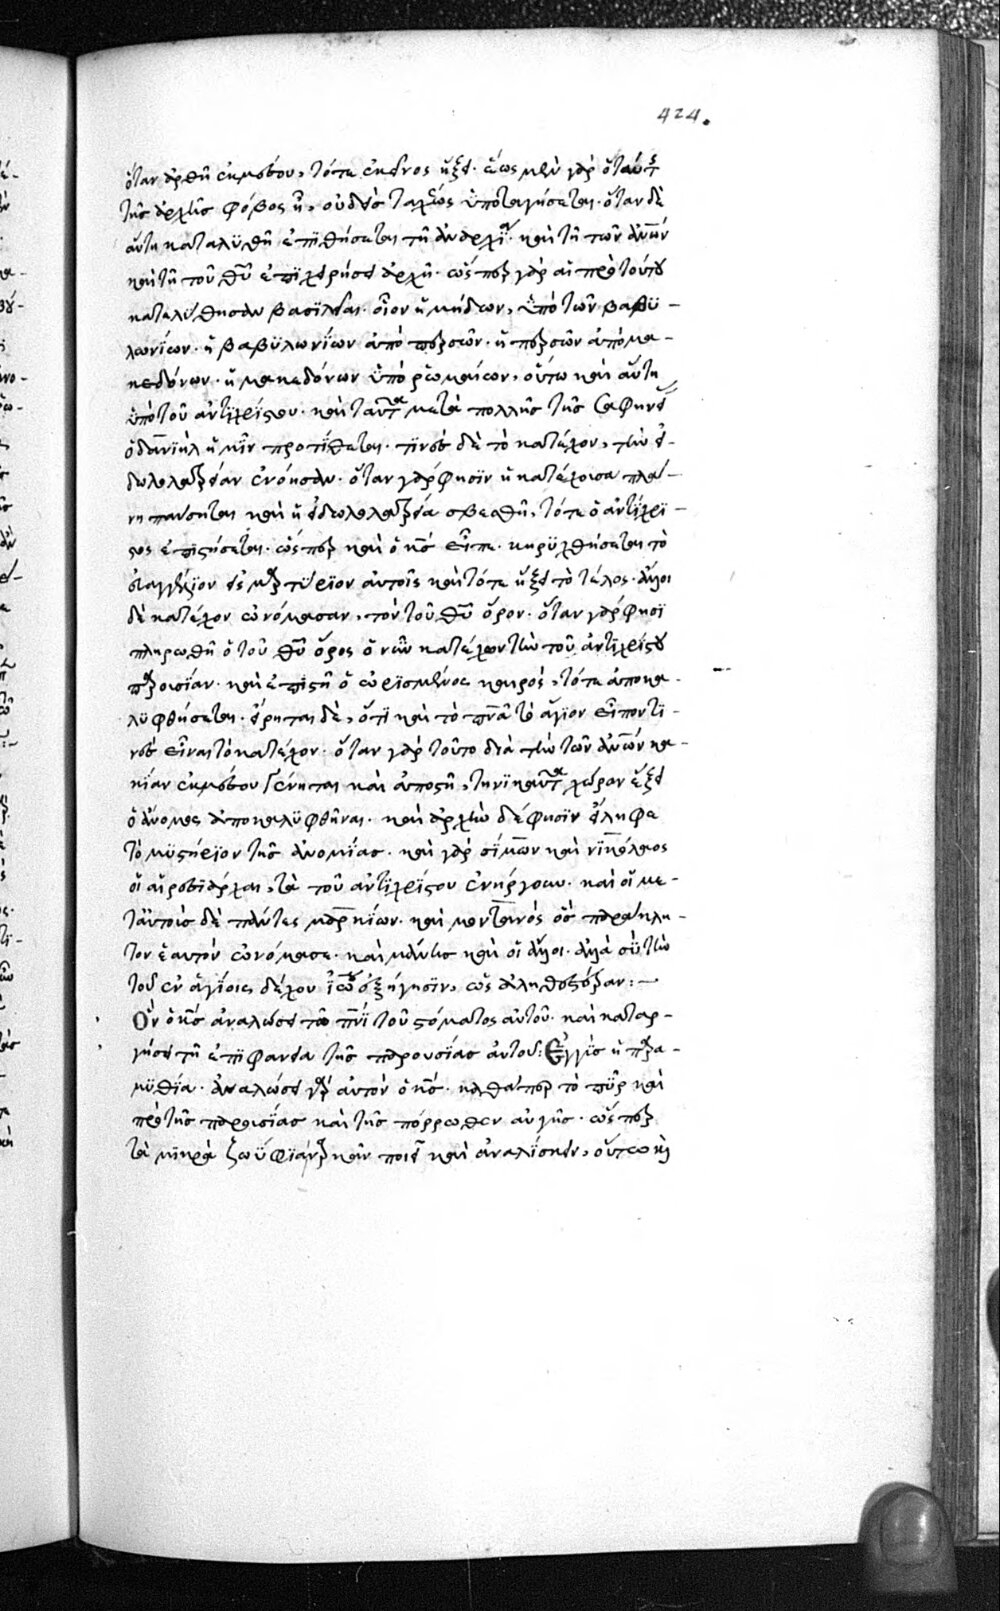 424.
ὅταν ἀρθῆ ἐκ μέσου, τότε ἐκεῖνος ἥξει. ἕως μὲν γὰρ ὁ ταύτης
τῆς ἀρχῆς φόβος ἦ, οὐδεὶς ταχέως ὑποταγήσεται. ὅταν δὲ
αὕτη καταλυθῆ ἐπιθήσεται τῆ ἀναρχία. καὶ τὴν τῶν ἀνων
καὶ τὴν τοῦ θυ ἐπιχειρήσει ἀρχὴν. ὥσπερ γὰρ αἱ πρὸ τούτου
κατελύθησαν βασιλεῖαι. οἷον ἡ μήδων, ὑπὸ τῶν βαβυ-
λωνίων. ἡ βαβυλωνίων ἀπὸ περσῶν. ἡ περσῶν ἀπὸ μα-
κεδόνων. ἡ μακεδόνων ὑπὸ ρωμαίων, οὕτω καὶ αὕτη
ὑπὸ τοῦ ἀντιχρίστου. καὶ ταῦτα μετὰ πολλῆς τῆς σαφηνεί
ὁ δανιὴλ ἡμῖν προτίθεται. τινὲς δὲ τὸ κατέχον, τὴν εἰ-
δωλολατρείαν ἐνόησαν. ὅταν γὰρ φησὶν ἡ κατέχουσα πλά-
νη παύσηται καὶ ἡ εἰδωλολατρεία σβεσθῆ, τότε ὁ ἀντίχρι-
στος ἐπιστήσεται. ὥσπερ καὶ ὁ κς εἶπε. κηρυχθήσεται τὸ
εὐαγγέλιον εἰς μαρτύριον αὐτοῖς καὶ τότε ἥξει τὸ τέλος. ἄλλοι
δὲ κατέχον ὠνόμασαν, τὸν τοῦ θυ ὅρον. ὅταν γὰρ φησὶ
πληρωθῆ ὁ τοῦ θυ ὅρος ὁ νῦν κατέχων τὴν τοῦ ἀντιχρίστου
παρουσίαν. καὶ ἐπιστῆ ὁ ὡρισμένος καιρός, τότε ἀποκα-
λυφθήσεται. εἴρηται δὲ, ὅτι καὶ τὸ πνα τὸ ἅγιον εἶπον τι-
νὲς εἶναι τὸ κατέχον. ὅταν γὰρ τοῦτο διὰ τὴν τῶν ἀνων κα-
κίαν ἐκ μέσου γένηται καὶ ἀποστῆ, τηνικαῦτα χώραν ἕξει
ὁ ἄνομος ἀποκαλυφθῆναι. καὶ ἀρχὴν δέ φησὶν εἴληφε
τὸ μυστήριον τῆς ἀνομίας. καὶ γὰρ σίμων καὶ νικόλαος
οἱ αἱρεσιάρχαι, τὰ τοῦ ἀντιχρίστου ἐνήργουν. καὶ οἱ με-
τ' αὐτοὺς δὲ πάντες μαρκίων. καὶ μοντανός ὃς παράκλη-
τον ἑαυτὸν ὠνόμασε. καὶ μάνης καὶ οἱ ἄλλοι. ἀλλὰ σὺ τὴν
τοῦ ἐν ἁγίοις δέχου ἰω ἐξήγησιν, ὡς ἀληθεστέραν:—
Ὃν ὁ κς ἀναλώσει τῶ πνι τοῦ στόματος αὐτοῦ. καὶ καταρ-
γήσει τῆ ἐπιφανεία τῆς παρουσίας αὐτοῦ: Ἐγγὺς ἡ παρα-
μυθία. ἀναλώσει γὰρ αὐτὸν ὁ κς. καθάπερ τὸ πῦρ καὶ
πρὸ τῆς παρουσίας καὶ τῆς πόρρωθεν αὐγῆς. ὥσπερ
τὰ μικρὰ ζωύφια ναρκᾶν ποιεῖ καὶ ἀναλίσκει, οὕτω κὶ